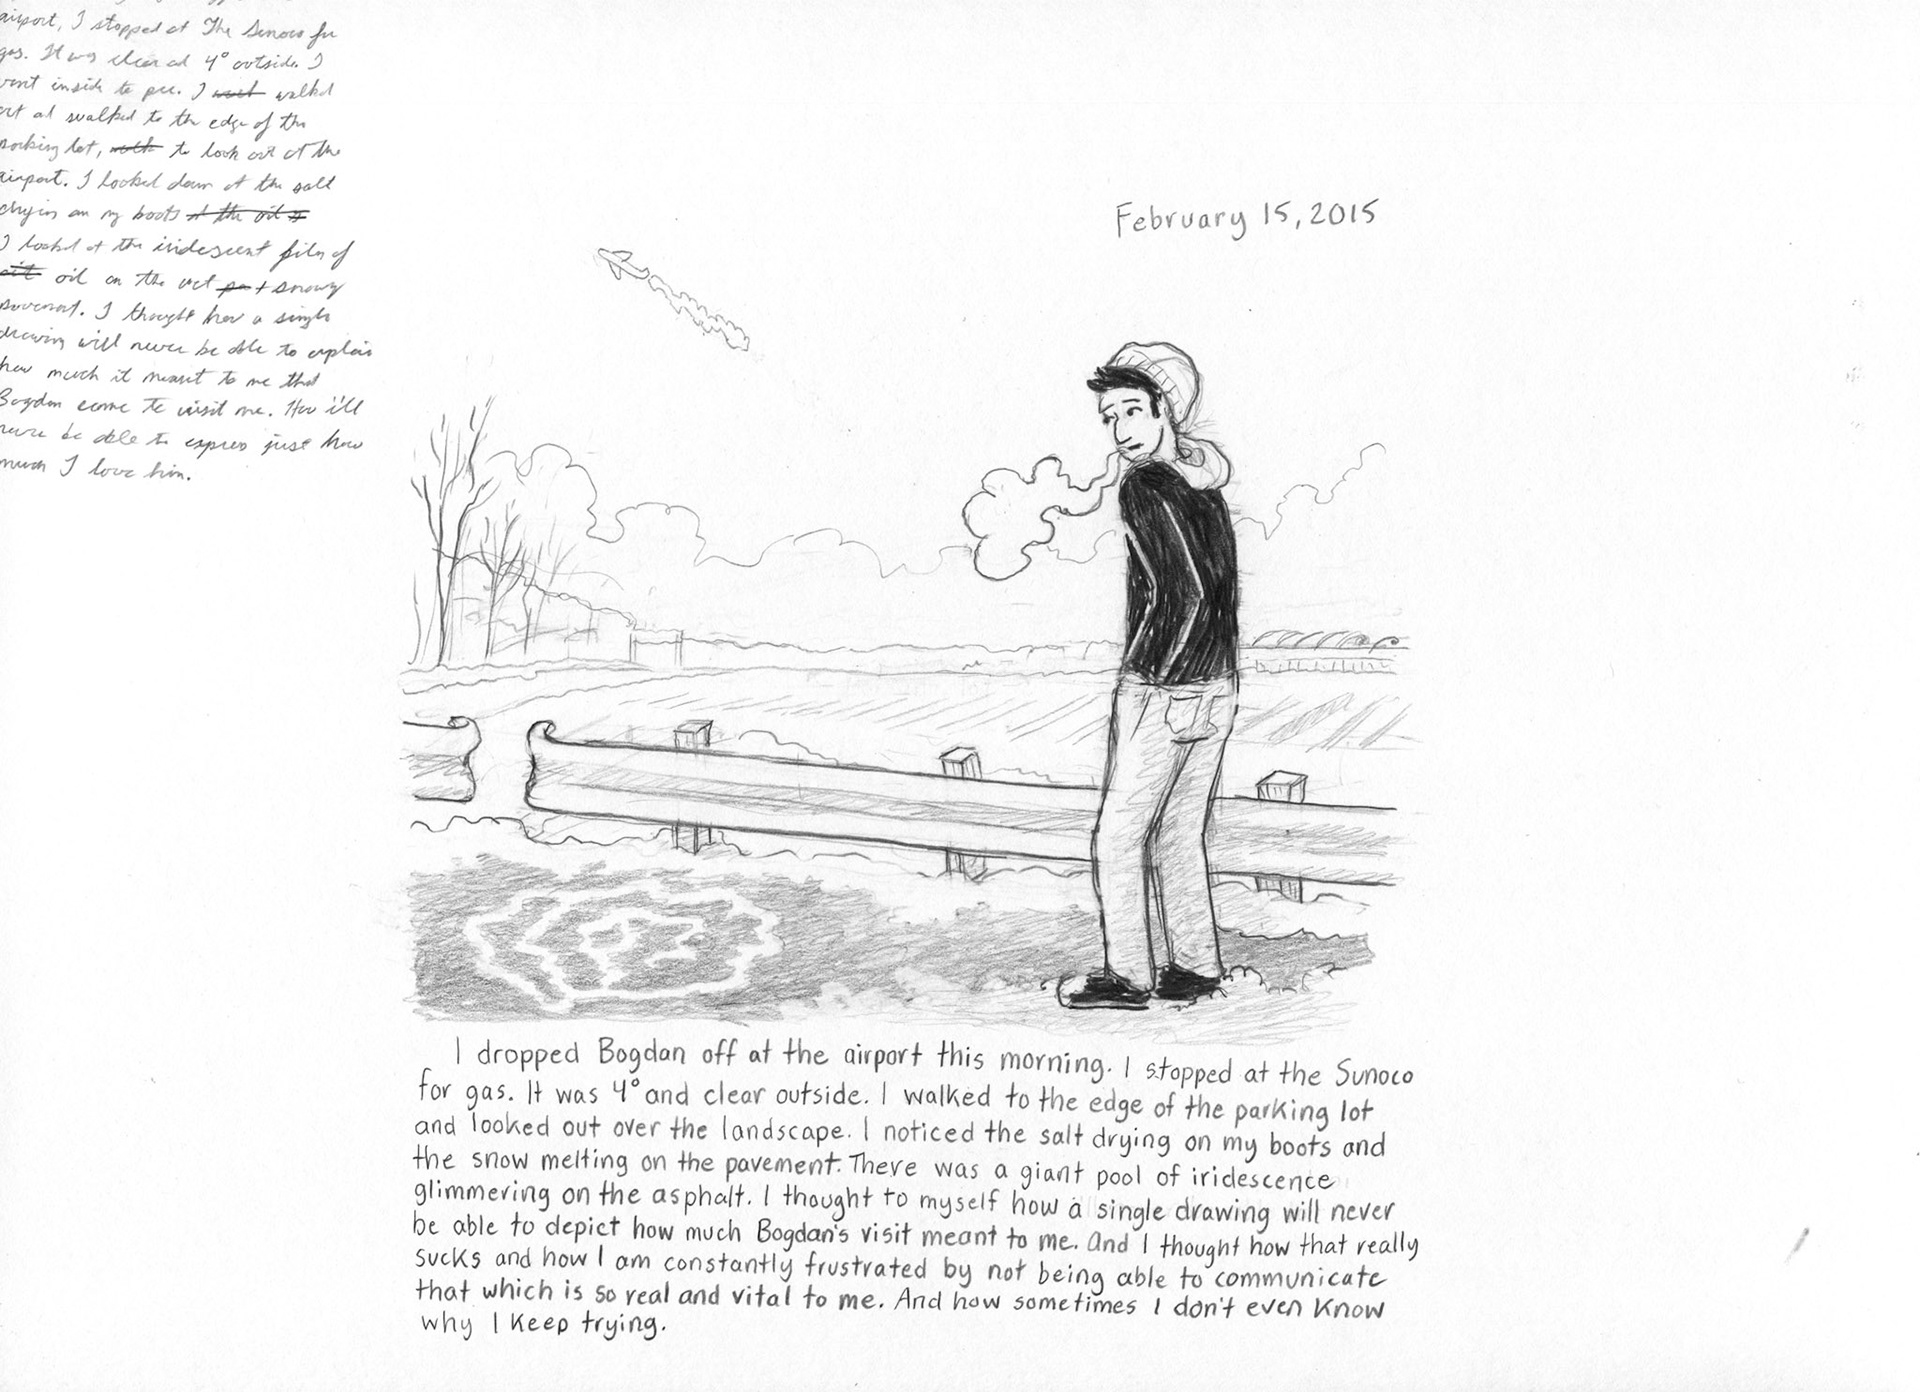 airport, I stopped at The Sunoco for
gas. It was clear and 4° outside. I
went inside to pee. I walked
out and walked to the edge of the
parking lot, to look out at the
airport. I looked down at the salt
drying on my boots at the oil
I looked at the iridescent film of
oil on the wet + snowy
pavement. I thought how a single
drawing will never be able to explain
how much it meant to me that
Bogdan came to visit me. How i'll
never be able to express just how
much I love him.
February 15, 2015
I dropped Bogdan off at the airport this morning. I stopped at the Sunoco
for gas. It was 4° and clear outside. I walked to the edge of the parking lot
and looked out over the landscape. I noticed the salt drying on my boots and
the snow melting on the pavement. There was a giant pool of iridescence
glimmering on the asphalt. I thought to myself how a single drawing will never
be able to depict how much Bogdan's visit meant to me. And I thought how that really
sucks and how I am constantly frustrated by not being able to communicate
that which is so real and vital to me. And how sometimes I don't even know
why I keep trying.